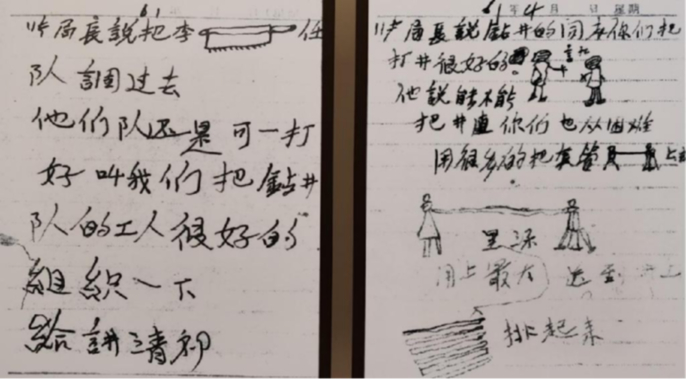 61
听局長說把李 任
队調过去
他们队还是可一打
好叫我们把鉆井
队的工人很好的
組织一下
給講清初
61年4月 日 星期
听局長說鉆井的 你们把
打井很好的
他說能不能
把井直你们也从困难
用很多的把 管
里深
用上最大 达到
排起来